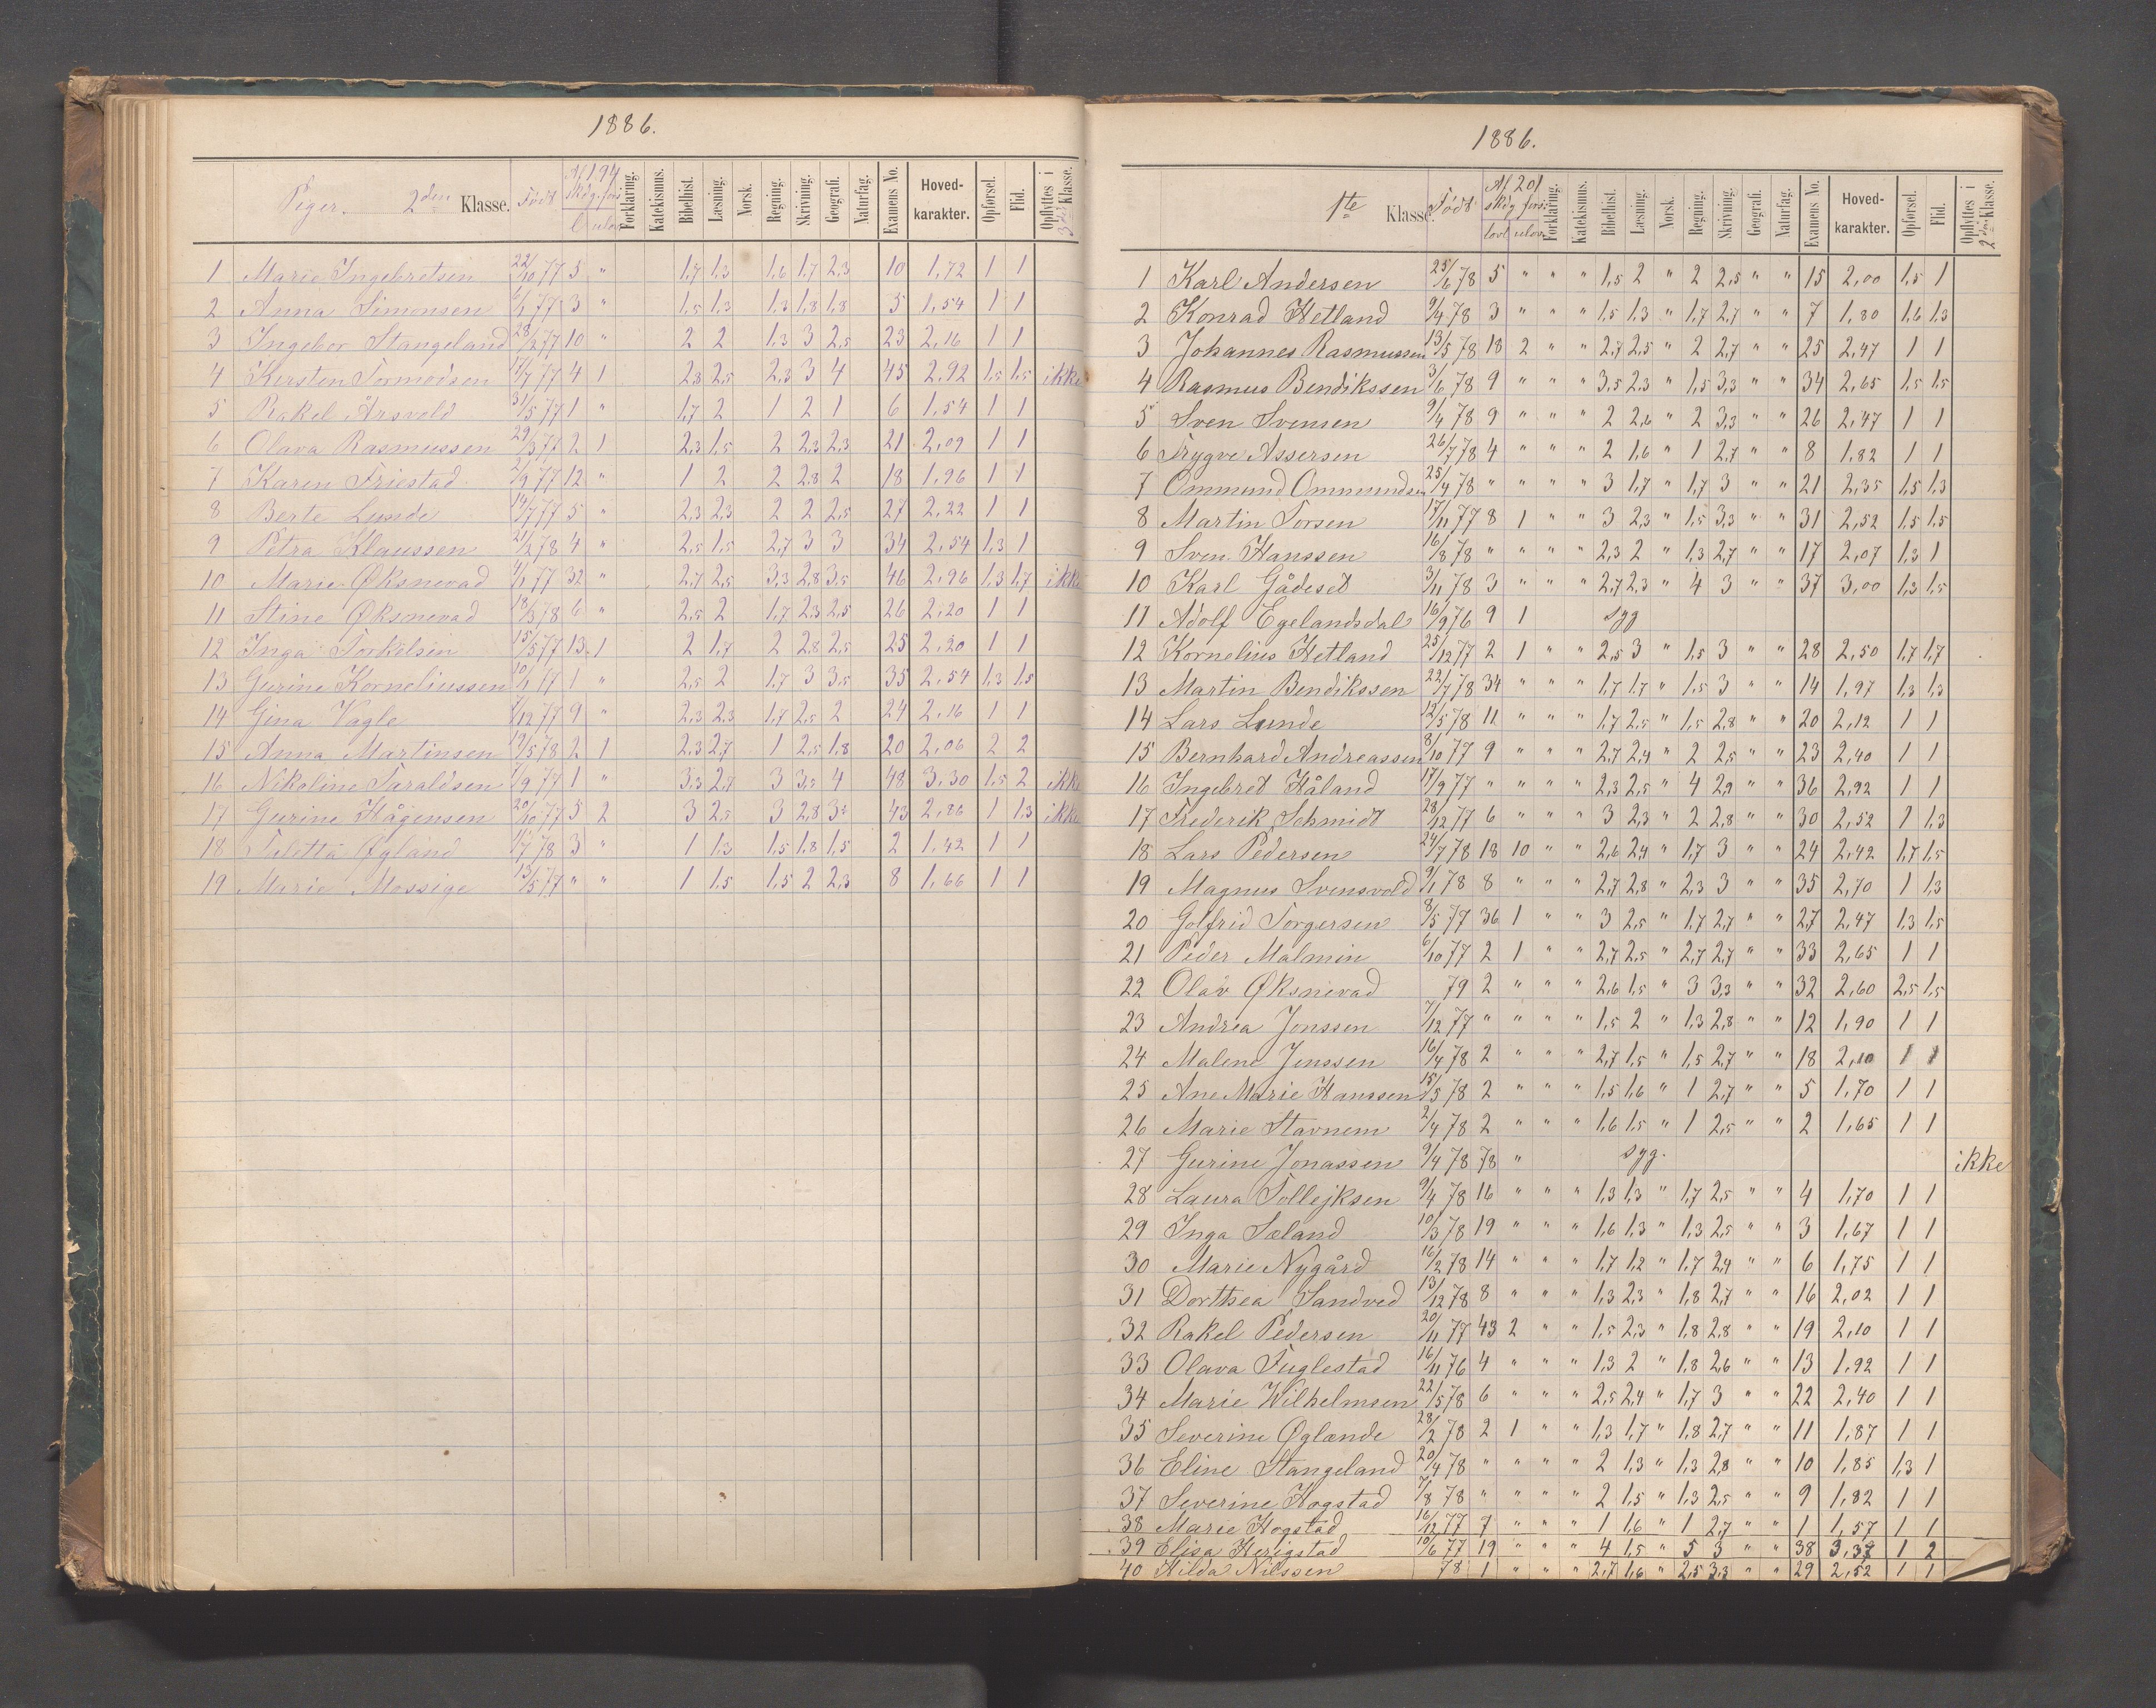 1886.
Piger. 2den Klasse. Født Af 194 skdg. fors. l. ulov. Forklaring. Katekismus. Bibelhist. Læsning. Norsk. Regning. Skrivning. Geografi. Naturfag. Examens No. Hoved-karakter. Opførsel. Flid. Opflyttes i 3die Klasse.
1 Marie Ingebretsen 22/10 77 5 " 1,7 1,3 1,6 1,7 2,3 10 1,72 1 1
2 Anna Simonsen 6/1 77 3 " 1,5 1,3 1,3 1,8 1,8 5 1,54 1 1
3 Ingebor Stangeland 28/2 77 10 " 2 2 1,3 3 2,5 23 2,16 1 1
4 Kersten Tormodsen 17/7 77 4 1 2,8 2,5 2,3 3 4 45 2,92 1,5 1,5 ikke
5 Rakel Årsvold 31/5 77 1 " 1,7 2 1 2 1 6 1,54 1 1
6 Olava Rasmussen 29/3 77 2 1 2,3 1,5 2 2,3 2,3 21 2,09 1 1
7 Karen Friestad 2/9 77 12 " 1 2 2 2,8 2 18 1,96 1 1
8 Berte Lunde 14/7 77 5 " 2,3 2,3 2 2 2,5 27 2,22 1 1
9 Petra Klaussen 21/2 78 4 " 2,5 1,5 2,7 3 3 34 2,54 1,3 1
10 Marie Øksnevad 4/1 77 32 " 2,7 2,5 3,3 2,8 3,5 46 2,96 1,3 1,7 ikke
11 Stine Øksnevad 18/3 78 6 " 2,5 2 1,7 2,3 2,5 26 2,20 1 1
12 Inga Torkelsen 15/5 77 13 1 2 1,7 2 2,8 2,5 25 2,20 1 1
13 Gurine Korneliussen 10/1 77 1 " 2,5 2 1,7 3 3,5 35 2,54 1,3 1,5
14 Gina Vagle /12 77 9 " 2,3 2,3 1,7 2,5 2 24 2,16 1 1
15 Anna Martinsen 19/5 78 2 1 2,3 2,7 1 2,5 1,8 20 2,06 2 2
16 Nikoline Taraldsen /9 77 1 " 3,3 2,7 3 3,5 4 48 3,30 1,5 2 ikke
17 Gurine Hågensen 20/10 77 5 2 3 2,5 3 2,8 3 43 2,86 1 1,3 ikke
18 Teletta Øgland 11/7 78 3 " 1 1,3 1,5 1,8 1,5 2 1,42 1 1
19 Marie Mossige 13/5 77 " " 1 1,5 1,5 2 2,3 8 1,66 1 1
1886.
1te Klasse. Født Af 201 skdg fors. lovl ulovl Forklaring. Katekismus. Bibelhist. Læsning. Norsk. Regning. Skrivning. Geografi. Naturfag. Examens No. Hoved-karakter. Opførsel. Flid. Opflyttes i 2den Klasse.
1 Karl Andersen 25/6 78 5 " " " 1,5 2 " 2 2,5 " " 15 2,00 1,5 1
2 Konrad Hetland 9/4 78 3 " " " 1,5 1,3 " 1,7 2,7 " " 7 1,80 1,6 1,3
3 Johannes Rasmussen 13/5 78 18 2 " " 2,7 2,5 " 2 2,7 " " 25 2,47 1 1
4 Rasmus Bendikssen 3/6 78 9 " " " 3,5 2,3 " 1,5 3,3 " " 34 2,65 1,5 1,5
5 Sven Svensen 9/4 78 9 " " " 2 2,6 " 2 3,3 " " 26 2,47 1 1
6 Trygve Assersen 26/7 78 4 " " " 2 1,6 " 1 2,7 " " 8 1,82 1 1
7 Ommund Ommundsen 25/4 78 " " " " 3 1,7 " 1,7 3 " " 21 2,35 1,5 1,3
8 Martin Torsen 17/11 77 8 1 " " 3 2,3 " 1,5 3,3 " " 31 2,52 1,5 1,5
9 Sven Hanssen 16/8 78 " " " " 2,3 2 " 1,3 2,7 " " 17 2,07 1,3 1
10 Karl Gådeset 3/11 78 3 " " " 2,7 2,3 " 4 3 " " 37 3,00 1,3 1,5
11 Adolf Egelandsdal 16/9 76 9 1 syg
12 Kornelius Hetland 25/12 77 2 1 " " 2,5 3 " 1,5 3 " " 28 2,50 1,7 1,7
13 Martin Bendikssen 22/7 78 34 " " " 1,7 1,7 " 1,5 3 " " 14 1,97 1,3 1,3
14 Lars Lunde 12/5 78 11 " " " 1,7 2,5 " 1,5 2,8 " " 20 2,12 1 1
15 Bernhard Andreassen 8/10 77 9 " " " 2,7 2,4 " 2 2,5 " " 23 2,40 1 1
16 Ingebret Håland 17/9 77 " " " " 2,3 2,5 " 4 2,9 " " 36 2,92 1 1
17 Frederik Schmidt 28/12 77 6 " " " 3 2,3 " 2 2,8 " " 30 2,52 1 1,3
18 Lars Pedersen 24/7 78 18 10 " " 2,6 2,4 " 1,7 3 " " 24 2,42 1,7 1,5
19 Magnus Svensvold 9/1 78 8 " " " 2,7 2,8 " 2,3 3 " " 35 2,70 1 1,3
20 Golfrid Torgersen 8/5 77 36 1 " " 3 2,5 " 1,7 2,7 " " 27 2,47 1,3 1,5
21 Peder Malmin 6/10 77 2 1 " " 2,7 2,5 " 2,7 2,7 " " 33 2,65 1 1
22 Olav Øksnevad 79 2 " " " 2,6 1,5 " 3 3,3 " " 32 2,60 2,5 1,5
23 Andrea Jonssen 7/12 77 " " " " 1,5 2 " 1,3 2,8 " " 12 1,90 1 1
24 Malene Jenssen 16/4 78 2 " " " 2,7 1,5 " 1,5 2,7 " " 18 2,10 1 1
25 Ane Marie Hanssen 15/5 78 2 " " " 1,5 1,6 " 1 2,7 " " 5 1,70 1 1
26 Marie Stavnem 2/4 78 2 " " " 1,6 1,5 " 1 2,5 " " 2 1,65 1 1
27 Gurine Jonassen 9/4 78 78 " syg. ikke
28 Laura Tollejksen 9/4 78 16 " " " 1,3 1,3 " 1,7 2,5 " " 4 1,70 1 1
29 Inga Sæland 10/3 78 19 " " " 1,6 1,3 " 1,3 2,5 " " 3 1,67 1 1
30 Marie Nygård 16/2 78 14 " " " 1,7 1,2 " 1,7 2,4 " " 6 1,75 1 1
31 Dorthea Sandved 13/12 78 8 " " " 1,3 2,3 " 1,8 2,7 " " 16 2,02 1 1
32 Rakel Pedersen 20/11 77 43 2 " " 1,5 2,3 " 1,8 2,8 " " 19 2,10 1 1
33 Olava Fuglestad 16/11 76 4 " " " 1,3 2 " 1,8 2,6 " " 13 1,92 1 1
34 Marie Wilhelmsen 22/5 78 6 " " " 2,5 2,4 " 1,7 3 " " 22 2,40 1 1
35 Severine Øglænde 28/2 78 2 1 " " 1,3 1,7 " 1,8 2,7 " " 11 1,87 1 1
36 Eline Stangeland 20/4 78 " " " " 2 1,3 " 1,3 2,8 " " 10 1,85 1,3 1
37 Severine Hogstad 7/8 78 " " " " 2 1,5 " 1,3 2,5 " " 9 1,82 1 1
38 Marie Hogstad 16/12 77 7 " " " 1 1,6 " 1 2,7 " " 1 1,57 1 1
39 Elisa Herigstad 10/6 77 19 " " " 4 1,5 " 5 3 " " 38 3,37 1 2
40 Hilda Nilssen 78 1 " " " 2,7 1,6 " 2,5 3,3 " " 29 2,52 1 1